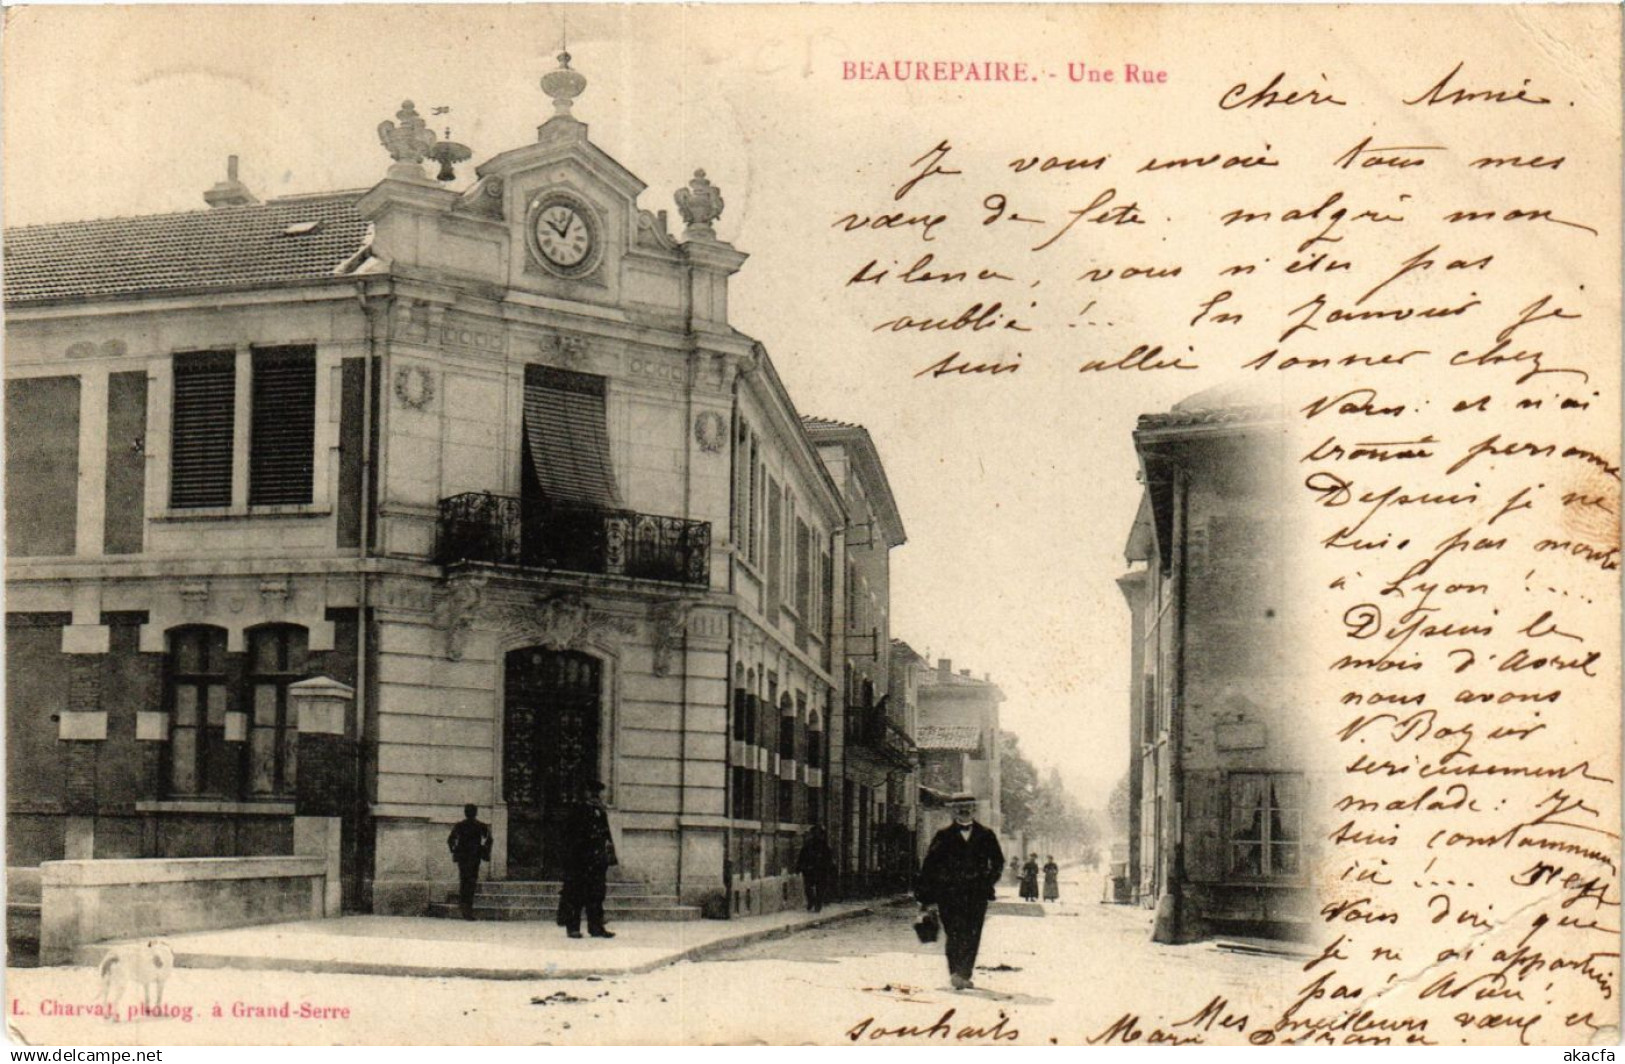 BEAUREPAIRE. - Une Rue
Chère Amie.
Je vous envoie tous mes
vœux de fête. malgré mon
silence, vous n'êtes pas
oublié !... En Janvier je
suis allée sonner chez
Vous : et n'ai
trouvé personne
Depuis je ne
suis pas monté
à Lyon !....
Depuis le
mois d'Avril
nous avons
serieusement
malade : Je
suis constamment
ici !....
Vous dire que
je ne m'appartiens
pas ! Adieu !
Mes meilleurs vœux et
souhaits. Marie
L. Charvat, photog. à Grand-Serre
akacfa